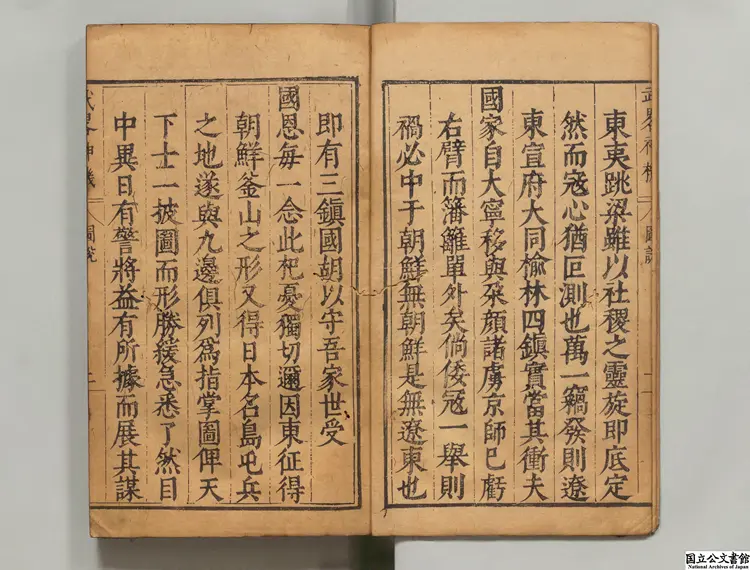 武畧神機
圖說
東夷跳梁雖以社稷之靈旋即底定
然而冦心猶叵測也萬一竊發則遼
東宣府大同榆林四鎮實當其衝夫
國家自大寧移與朶顏諸虜京師已虧
右臂而籓籬單外矣倘倭冦一舉則
禍必中于朝鮮無朝鮮是無遼東也
即有三鎮國胡以守吾家世受
國恩每一念此杞憂獨切邇因東征得
朝鮮釜山之形又得日本名島屯兵
之地遂與九邊俱列爲指掌圖俾天
下士一披圖而形勝緩急悉了然目
中異日有警將益有所據而展其謀
武畧神機
圖說
国立公文書館
National Archives of Japan